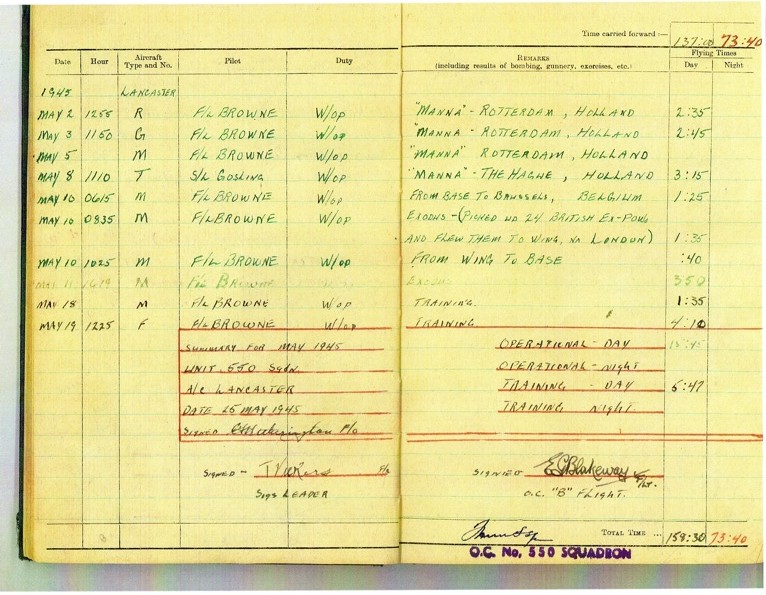 Time carried forward :— 137:00 73:40
Date Hour Aircraft Type and No. Pilot Duty REMARKS (including results of bombing, gunnery, exercises, etc.) Flying Times Day Night
1945 LANCASTER
MAY 2 1255 R F/L BROWNE W/OP "MANNA" - ROTTERDAM, HOLLAND 2:35
MAY 3 1150 G F/L BROWNE W/OP "MANNA - ROTTERDAM, HOLLAND 2:45
MAY 5 M F/L BROWNE W/OP "MANNA" ROTTERDAM, HOLLAND
MAY 8 1110 T S/L GOSLING W/OP "MANNA" - THE HAGUE, HOLLAND 3:15
MAY 10 0615 M F/L BROWNE W/OP FROM BASE TO BRUSSELS, BELGIUM 1:25
MAY 10 0835 M F/L BROWNE W/OP EXODUS - (PICKED UP 24 BRITISH EX-POWS
AND FLEW THEM TO WING, NR LONDON) 1:35
MAY 10 1025 M F/L BROWNE W/OP FROM WING TO BASE :40
MAY 11 M F/L BROWNE EXODUS 3:50
MAY 18 M F/L BROWNE W/OP TRAINING. 1:35
MAY 19 1225 F F/L BROWNE W/OP TRAINING 4:10
SUMMARY FOR MAY 1945 OPERATIONAL - DAY
UNIT 550 SQDN. OPERATIONAL - NIGHT
A/C LANCASTER TRAINING - DAY 5:47
DATE 25 MAY 1945 TRAINING NIGHT
SIGNED F/O
SIGNED - F/L SIGNED E.G. Blakeway F/Lt.
SIGS LEADER O.C. "B" FLIGHT.
TOTAL TIME ... 158:30 73:40
O.C. No. 550 SQUADRON